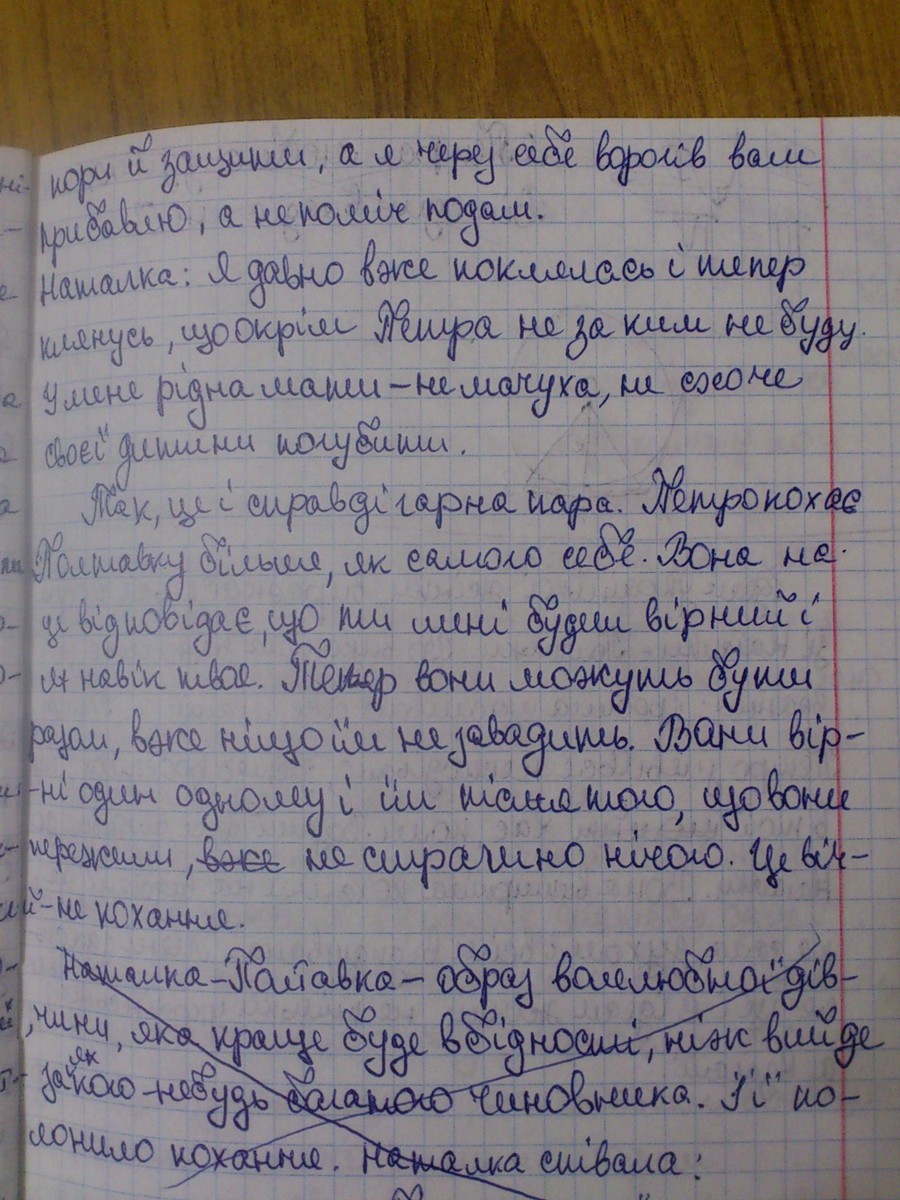 пори й защити, а я через себе ворогів вам
прибавлю, а не поміч подам.
Наталка: Я давно вже поклялась і тепер
клянусь, що окрім Петра не за ким не буду.
У мене рідна мати – не мачуха, не схоче
своєї дитини погубити.
Так, це і справді гарна пара. Петро кохає
Полтавку більше, як самого себе. Вона на
це відповідає, що ти мені будеш вірний і
я навік твоя. Тепер вони можуть бути
разом, вже ніщо їм не завадить. Вони вір-
-ні один одному і їм після того, що вони
пережили, вже не страчино нічого. Це віч-
-не кохання.
Наталка-Полтавка – образ волелюбної дів-
чини, яка краще буде в бідності, ніж вийде
за як кого-небудь багатого чиновника. Її по-
лонило кохання. Наталка співала: